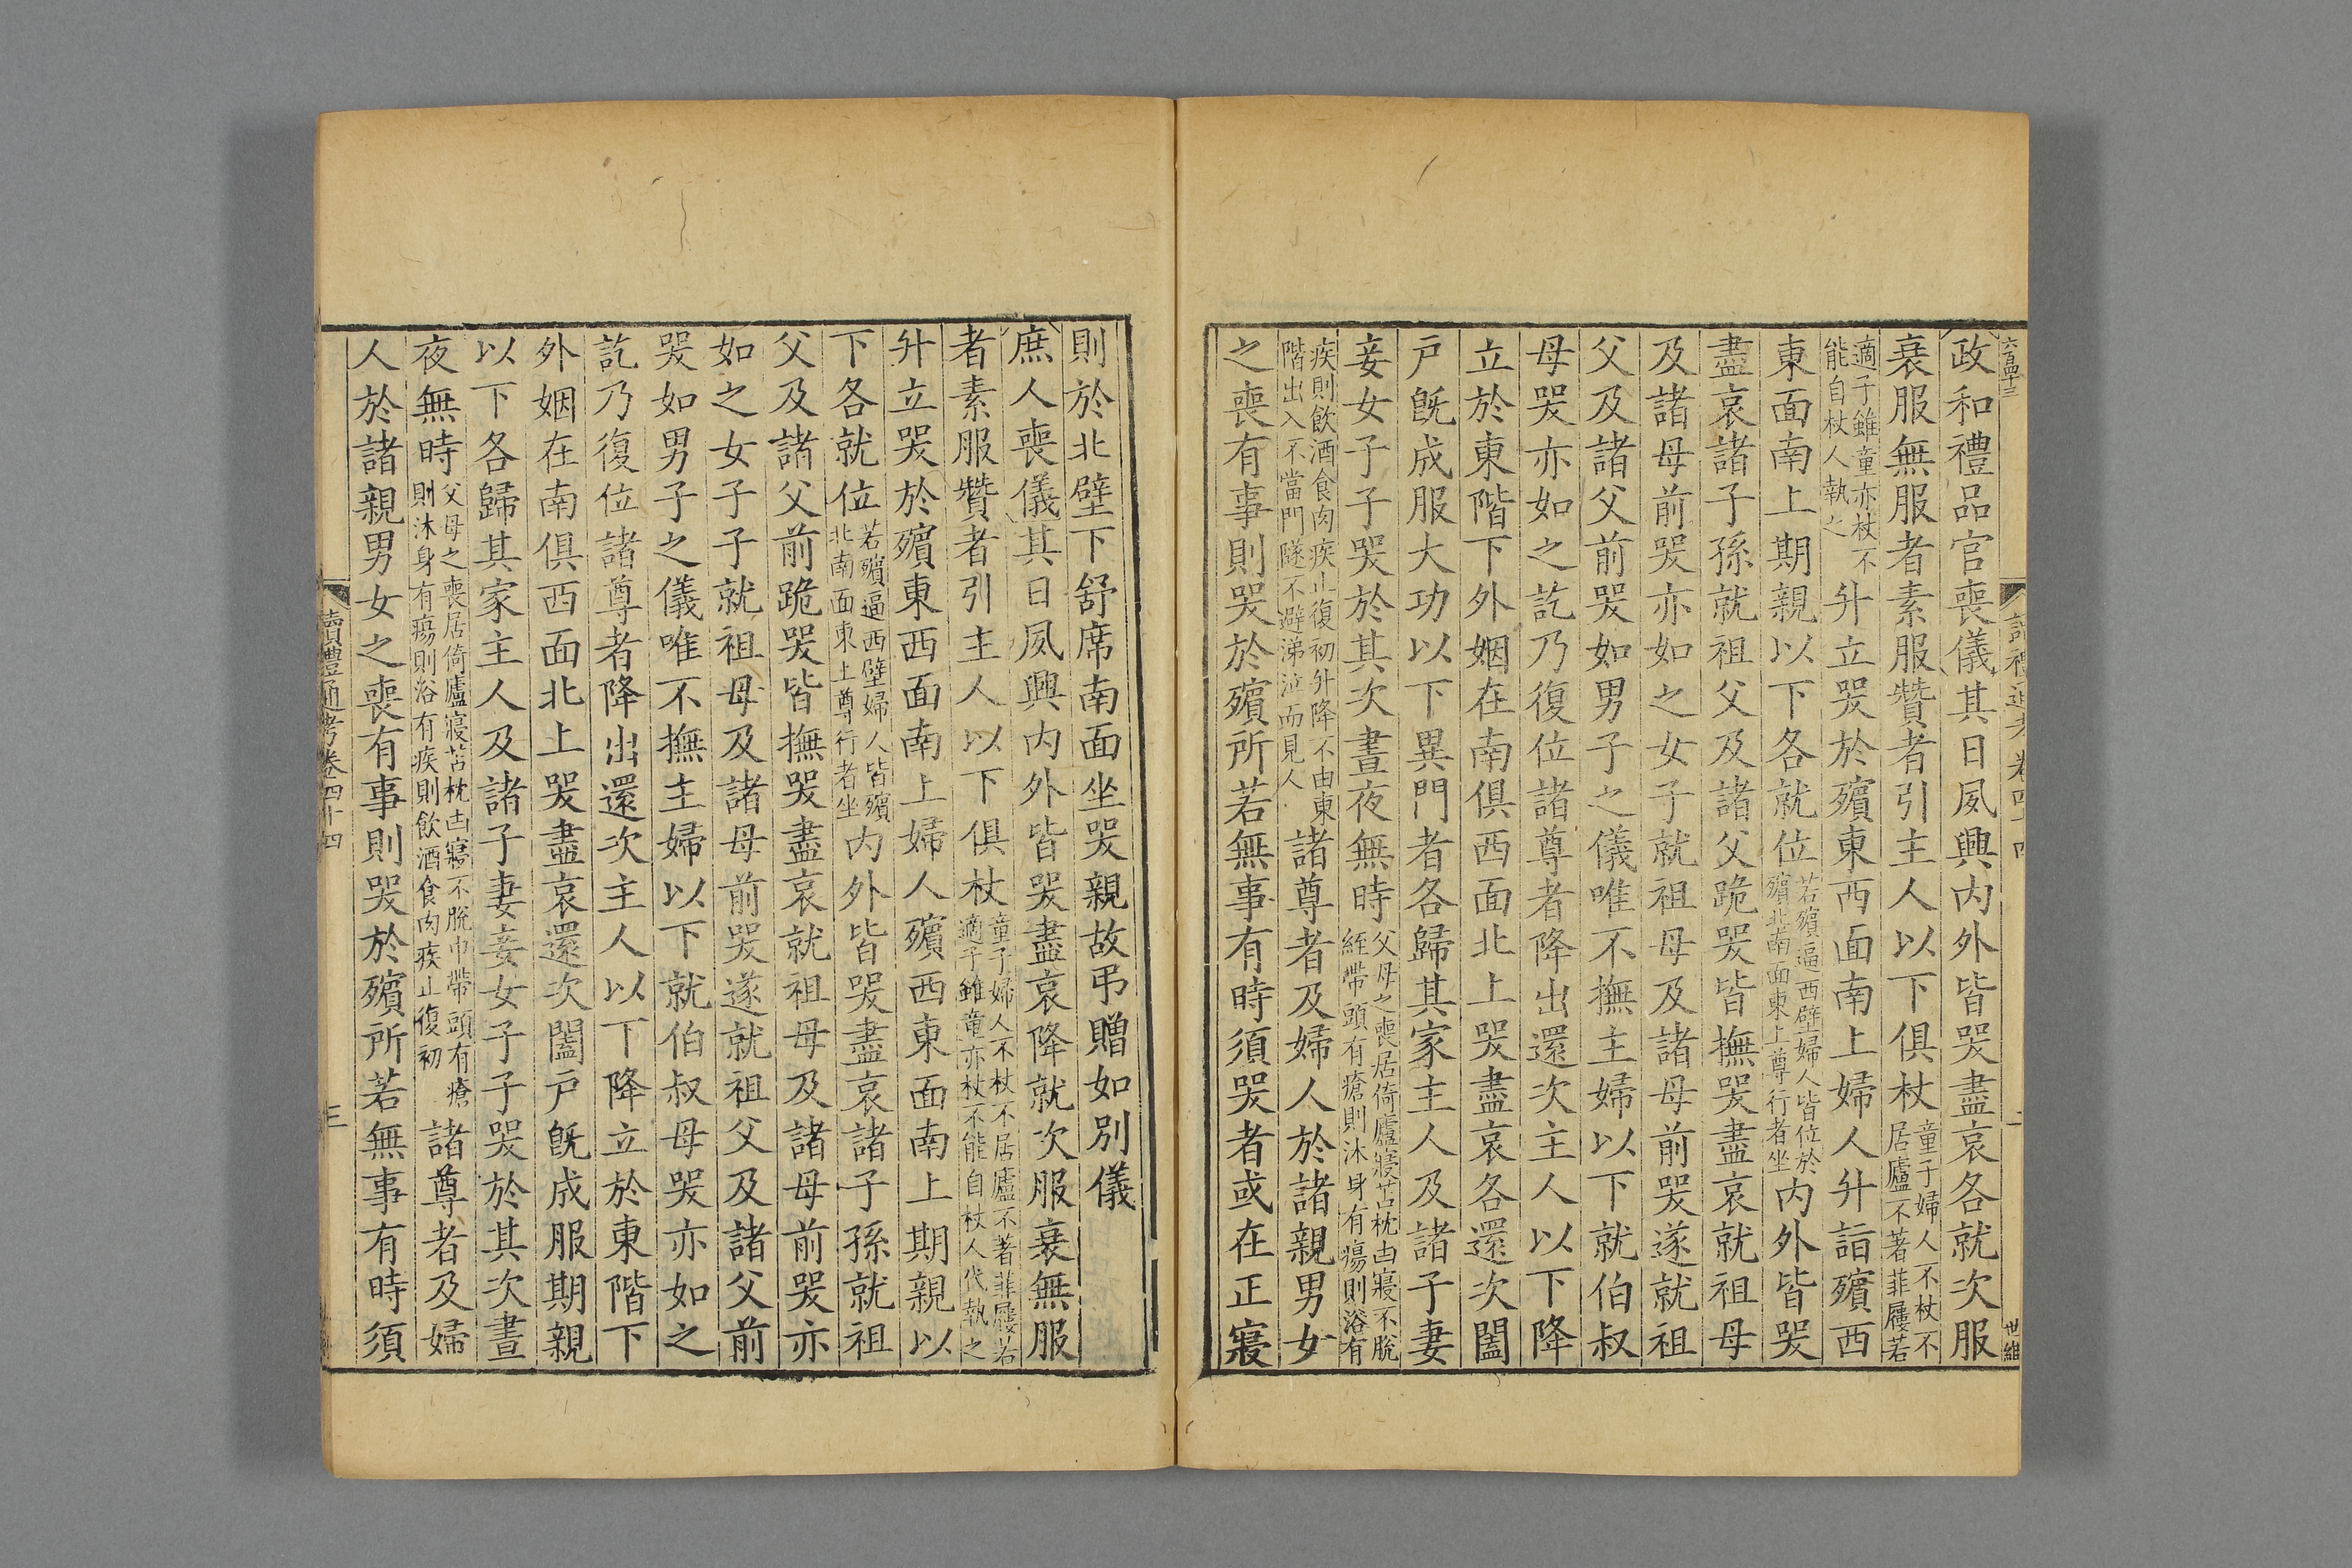 政和禮品官喪儀其日夙興內外皆哭盡哀各就次服
衰服無服者素服贊者引主人以下俱杖童子婦人不杖不居廬不著菲屨若
適子雖童亦杖不能自杖人執之升立哭於殯東西面南上婦人升詣殯西
東面南上期親以下各就位若殯逼西壁婦人皆位於殯北南面東上尊行者坐內外皆哭
盡哀諸子孫就祖父及諸父跪哭皆撫哭盡哀就祖母
及諸母前哭亦如之女子子就祖母及諸母前哭遂就祖
父及諸父前哭如男子之儀唯不撫主婦以下就伯叔
母哭亦如之訖乃復位諸尊者降出還次主人以下降
立於東階下外姻在南俱西面北上哭盡哀各還次闔
戶旣成服大功以下異門者各歸其家主人及諸子妻
妾女子子哭於其次晝夜無時父母之喪居倚廬寢苫枕凷寢不脫絰帶頭有瘡則沐身有瘍則浴有
疾則飲酒食肉疾止復初升降不由東階出入不當門隧不避涕泣而見人諸尊者及婦人於諸親男女
之喪有事則哭於殯所若無事有時須哭者或在正寢
則於北壁下舒席南面坐哭親故弔贈如別儀
庶人喪儀其日夙興內外皆哭盡哀降就次服衰無服
者素服贊者引主人以下俱杖童子婦人不杖不居廬不著菲屨若適子雖童亦杖不能自杖人代執之
升立哭於殯東西面南上婦人殯西東面南上期親以
下各就位若殯逼西壁婦人皆殯北南面東上尊行者坐內外皆哭盡哀諸子孫就祖
父及諸父前跪哭皆撫哭盡哀就祖母及諸母前哭亦
如之女子子就祖母及諸母前哭遂就祖父及諸父前
哭如男子之儀唯不撫主婦以下就伯叔母哭亦如之
訖乃復位諸尊者降出還次主人以下降立於東階下
外姻在南俱西面北上哭盡哀還次闔戶旣成服期親
以下各歸其家主人及諸子妻妾女子子哭於其次晝
夜無時父母之喪居倚廬寢苫枕凷寢不脫巾帶頭有瘡則沐身有瘍則浴有疾則飲酒食肉疾止復初諸尊者及婦
人於諸親男女之喪有事則哭於殯所若無事有時須
讀禮通考卷四十四
三